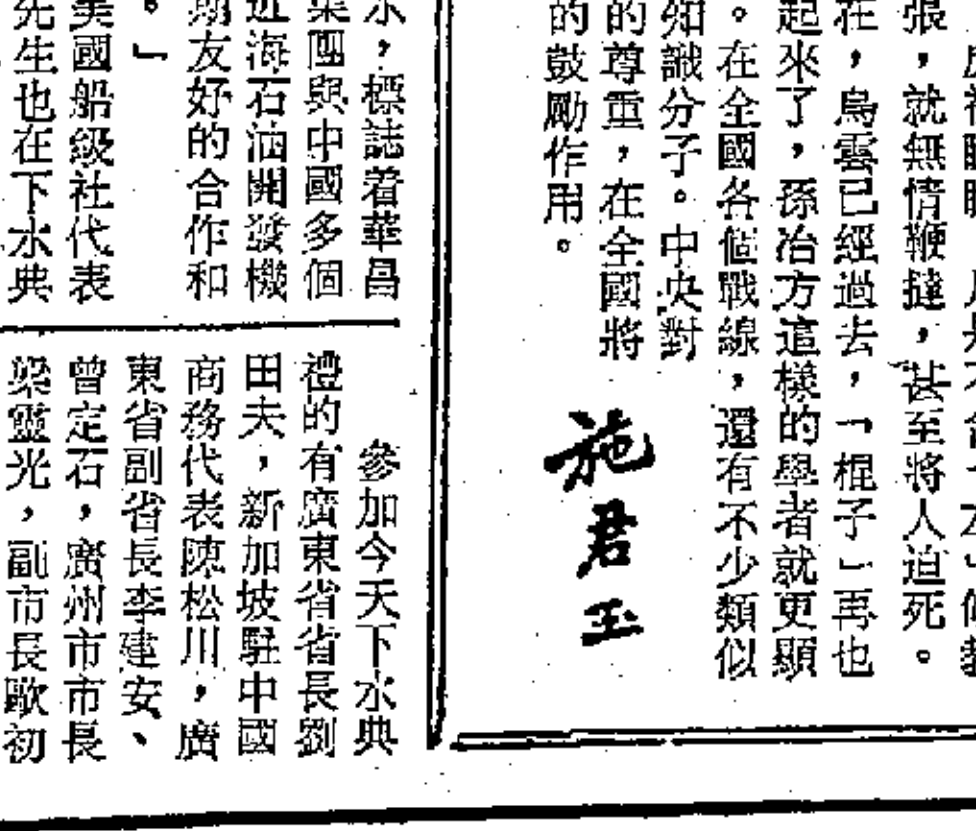 張，就無情鞭撻，甚至將人迫死。
在，烏雲已經過去，「棍子」再也
起來了，孫冶方這樣的學者就更顯
。在全國各個戰線，還有不少類似
知識分子。中央對
的尊重，在全國將
的鼓勵作用。
施君玉
水，標誌着華昌
集團與中國多個
近海石油開發機
期友好的合作和
。」
美國船級社代表
先生也在下水典
參加今天下水典
禮的有廣東省省長劉
田夫，新加坡駐中國
商務代表陳松川，廣
東省副省長李建安、
曾定石，廣州市市長
梁靈光，副市長歐初